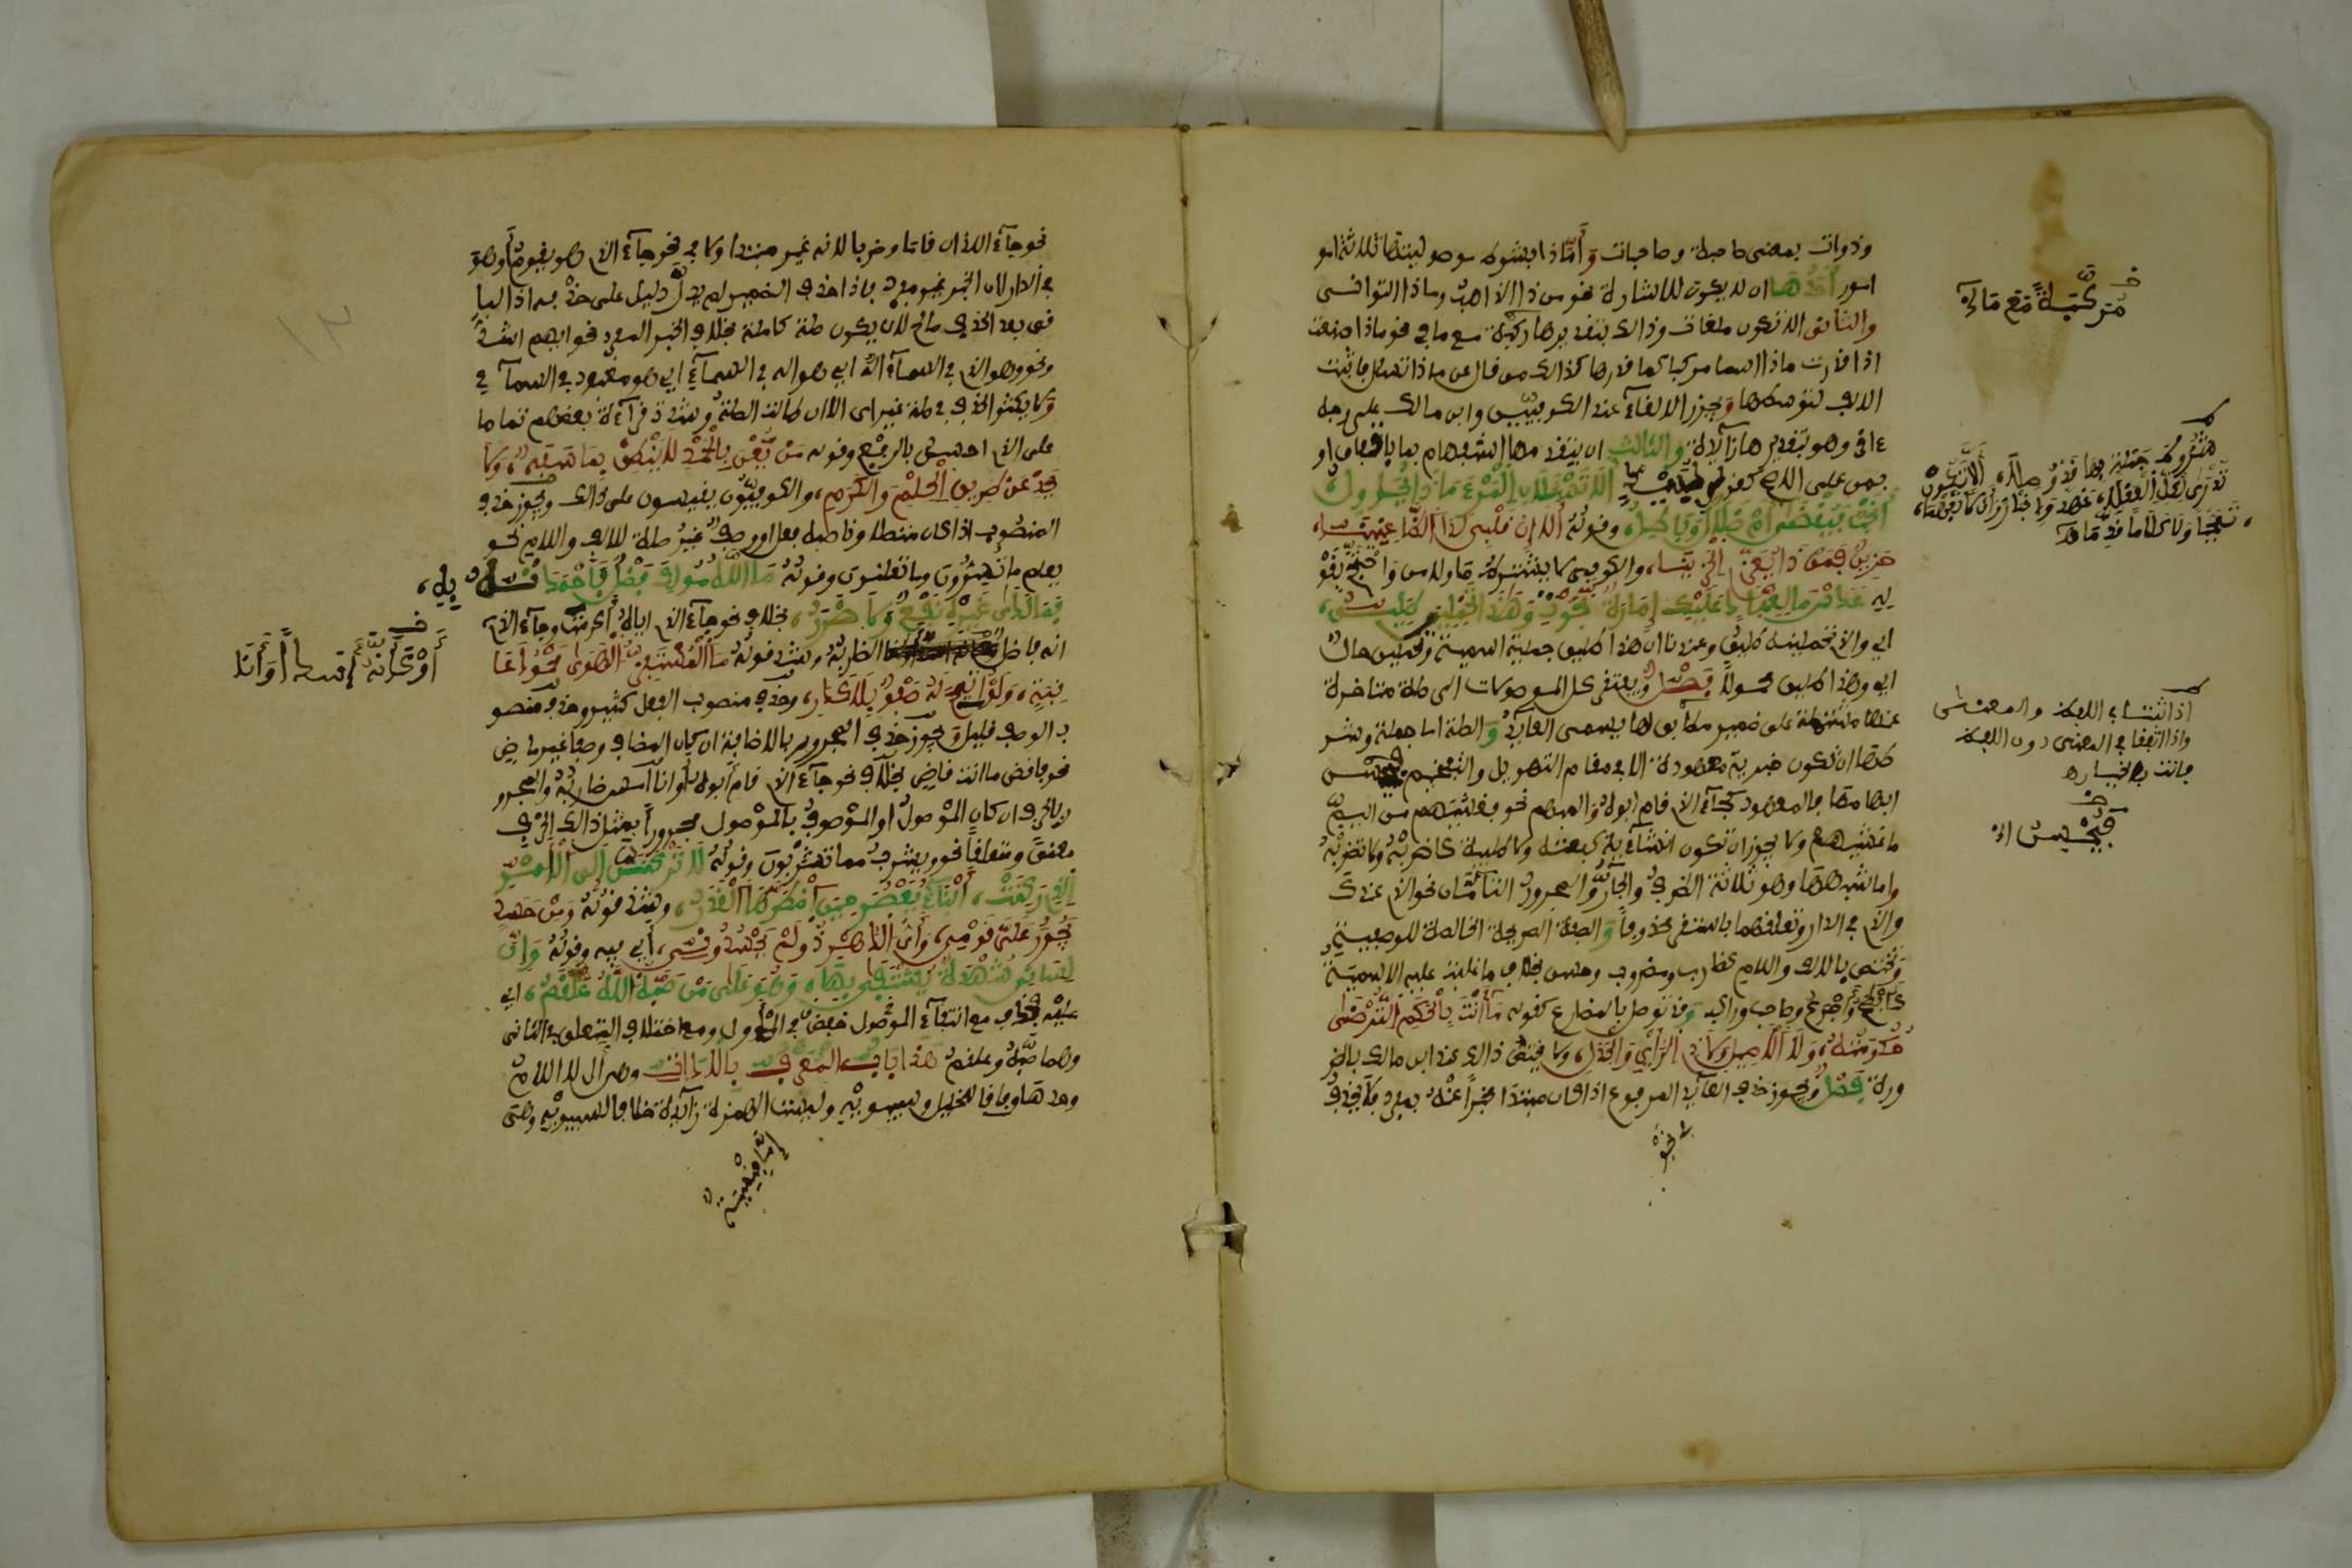 وذوات بمعنى صاحبة وصاحبات وأما ذا فشرط موصوليتها ثلاثة امو
امور أحدها ان لا يكون للاشارة نحو من ذا الذاهب وماذا التوانى
والثانى الا تكون ملغاة وذالك بتقديرها مركبة مع ما في نحو ماذا صنعت
اذا قدرت ماذا اسما مركبا كما قدرها كذالك من قال عن ماذا تسئل فاثبت
الالف لتوسطها ويجوز الالغاء عند الكوفيين وابن مالك على وجه
ءاخر وهو تقديرها زائدة والثالث ان يتقدمها استفهام بما باتفاق او
بمن على الاصح كقول لبيد ألا تسألان المرء ماذا يحاول
أنحب فيقضى أم ضلال وباطل وقوله ألا إن قلبى لدى الظاعنينا
حزين فمن ذا يعزى الحزينا والكوفى لا يشترط ما ولا من واحتج بقو
له عدس ما لعباد عليك إمارة نجوت وهذا تحملين طليق
اى والذى تحملينه طليق وعندنا ان هذا طليق جملة اسمية وتحملين حال
اى وهذا طليق محمولا فصل ويفتقر كل الموصولات الى صلة متاخرة
عنها مشتملة على ضمير مطابق لها يسمى العائد والصلة اما جملة وشر
طها ان تكون خبرية معهودة الا في مقام التهويل والتفخيم فيحسن
ابهامها فالمعهودة كجاء الذى قام ابوه والمبهمة نحو فغشيهم من اليم
ما غشيهم ولا يجوز ان تكون انشائية كبعتكه ولا طلبية كاضربه ولا تضربه
واما شبهها وهو ثلاثة الظرف والجار والمجرور التامان نحو الذى عندك
والذى فى الدار وتعلقهما باستقر محذوفا والصفة الصريحة الخالصة للوصفية
وتختص بالالف واللام كضارب ومضروب وحسن بخلاف ما غلبت عليه الاسمية
كأبطح وأجرع وصاحب وراكب وقد توصل بالمضارع كقوله ما أنت بالحكم الترضى
حكومته ولا الأصيل ولا ذى الرأى والجدل ولا يختص ذالك عند ابن مالك بالضر
ورة فصل ويجوز حذف العائد المرفوع اذا كان مبتدا مخبرا عنه بمفرد فلا يحذف
مركبة مع ما في
فيحسن اى
نحو جاء اللذان قاما وضربا لانه غير مبتدا ولا في نحو جاء الذى هو يقوم أو هو
فى الدار لان الخبر غير مفرد فاذا حذف الضمير لم يدل دليل على حذفه اذ البا
قى بعد الحذف صالح لان يكون صلة كاملة بخلاف الخبر المفرد نحو ايهم اشد
ونحو وهو الذى فى السماء اله اى هو اله فى السماء اى هو معبود فى السماء
ولا يكثر الحذف فى صلة غير اى الا ان طالت الصلة وشذت قراءة بعضهم تماما
على الذى احسن بالرفع وقوله من يعن بالحمد لا ينطق بما سفه ولا
يحد عن طريق الحلم والكرم والكوفيون يقيسون على ذالك ويجوز حذف
المنصوب اذا كان متصلا وناصبه فعل او وصف غير صلة للالف واللام نحو
يعلم ما تسرون وما تعلنون وقوله ما الله موليك فضل فاحمدنه به
فما لدى غيره نفع ولا ضرر بخلاف نحو جاء الذى اياه أكرمت وجاء الذى
انه فاضل الضاربه وشذ قوله ما المستفز الهوى محمود عا
قبة ولو أتيح له صفو بلا كدر وحذف منصوب الفعل كثير وحذف منصو
ب الوصف قليل ويجوز حذف المجرور بالاضافة ان كان المضاف وصفا غير ماض
نحو فاقض ما انت قاض بخلاف نحو جاء الذى قام أبوه وأنا أمس ضاربه والمجرو
ر بالحرف ان كان الموصول او الموصوف بالموصول مجرورا بمثل ذالك الحرف
معنى ومتعلقا نحو ويشرب مما تشربون وقوله لا تركنن إلى الأمر
الذى ركنت أبناء يعصر حين اضطرها القدر وشذ قوله ومن حسد
يجور على قومى وأى الدهر ذو لم يحسدونى أى فيه وقوله وإن
لسانى شهدة يشتفى بها وهو على من صبه الله علقم اى
عليه فحذف مع انتفاء الموصول خفض فى الأول ومع اختلاف المتعلق فى الثانى
وهما صبه وعلقم هذا باب المعرف بالاداة وهى أل لا اللام
وحدها وفاقا للخليل وسيبويه وليست الهمزة زائدة خلافا لسيبويه